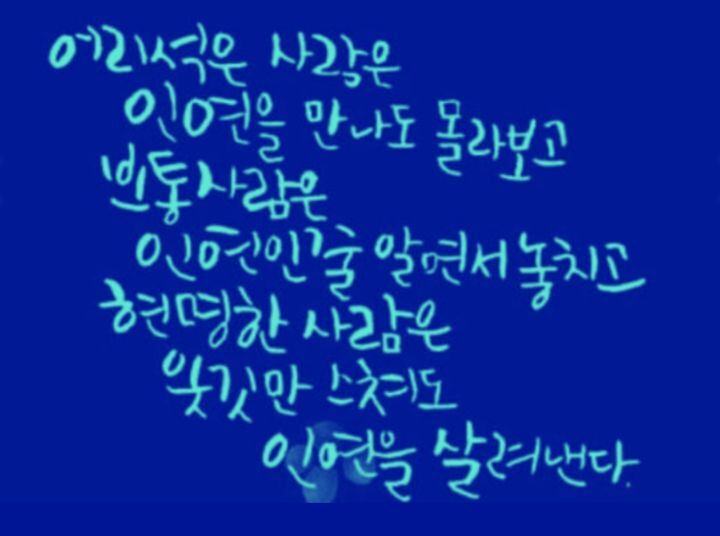 어리석은 사람은
인연을 만나도 몰라보고
보통사람은
인연인줄 알면서 놓치고
현명한 사람은
옷깃만 스쳐도
인연을 살려낸다.